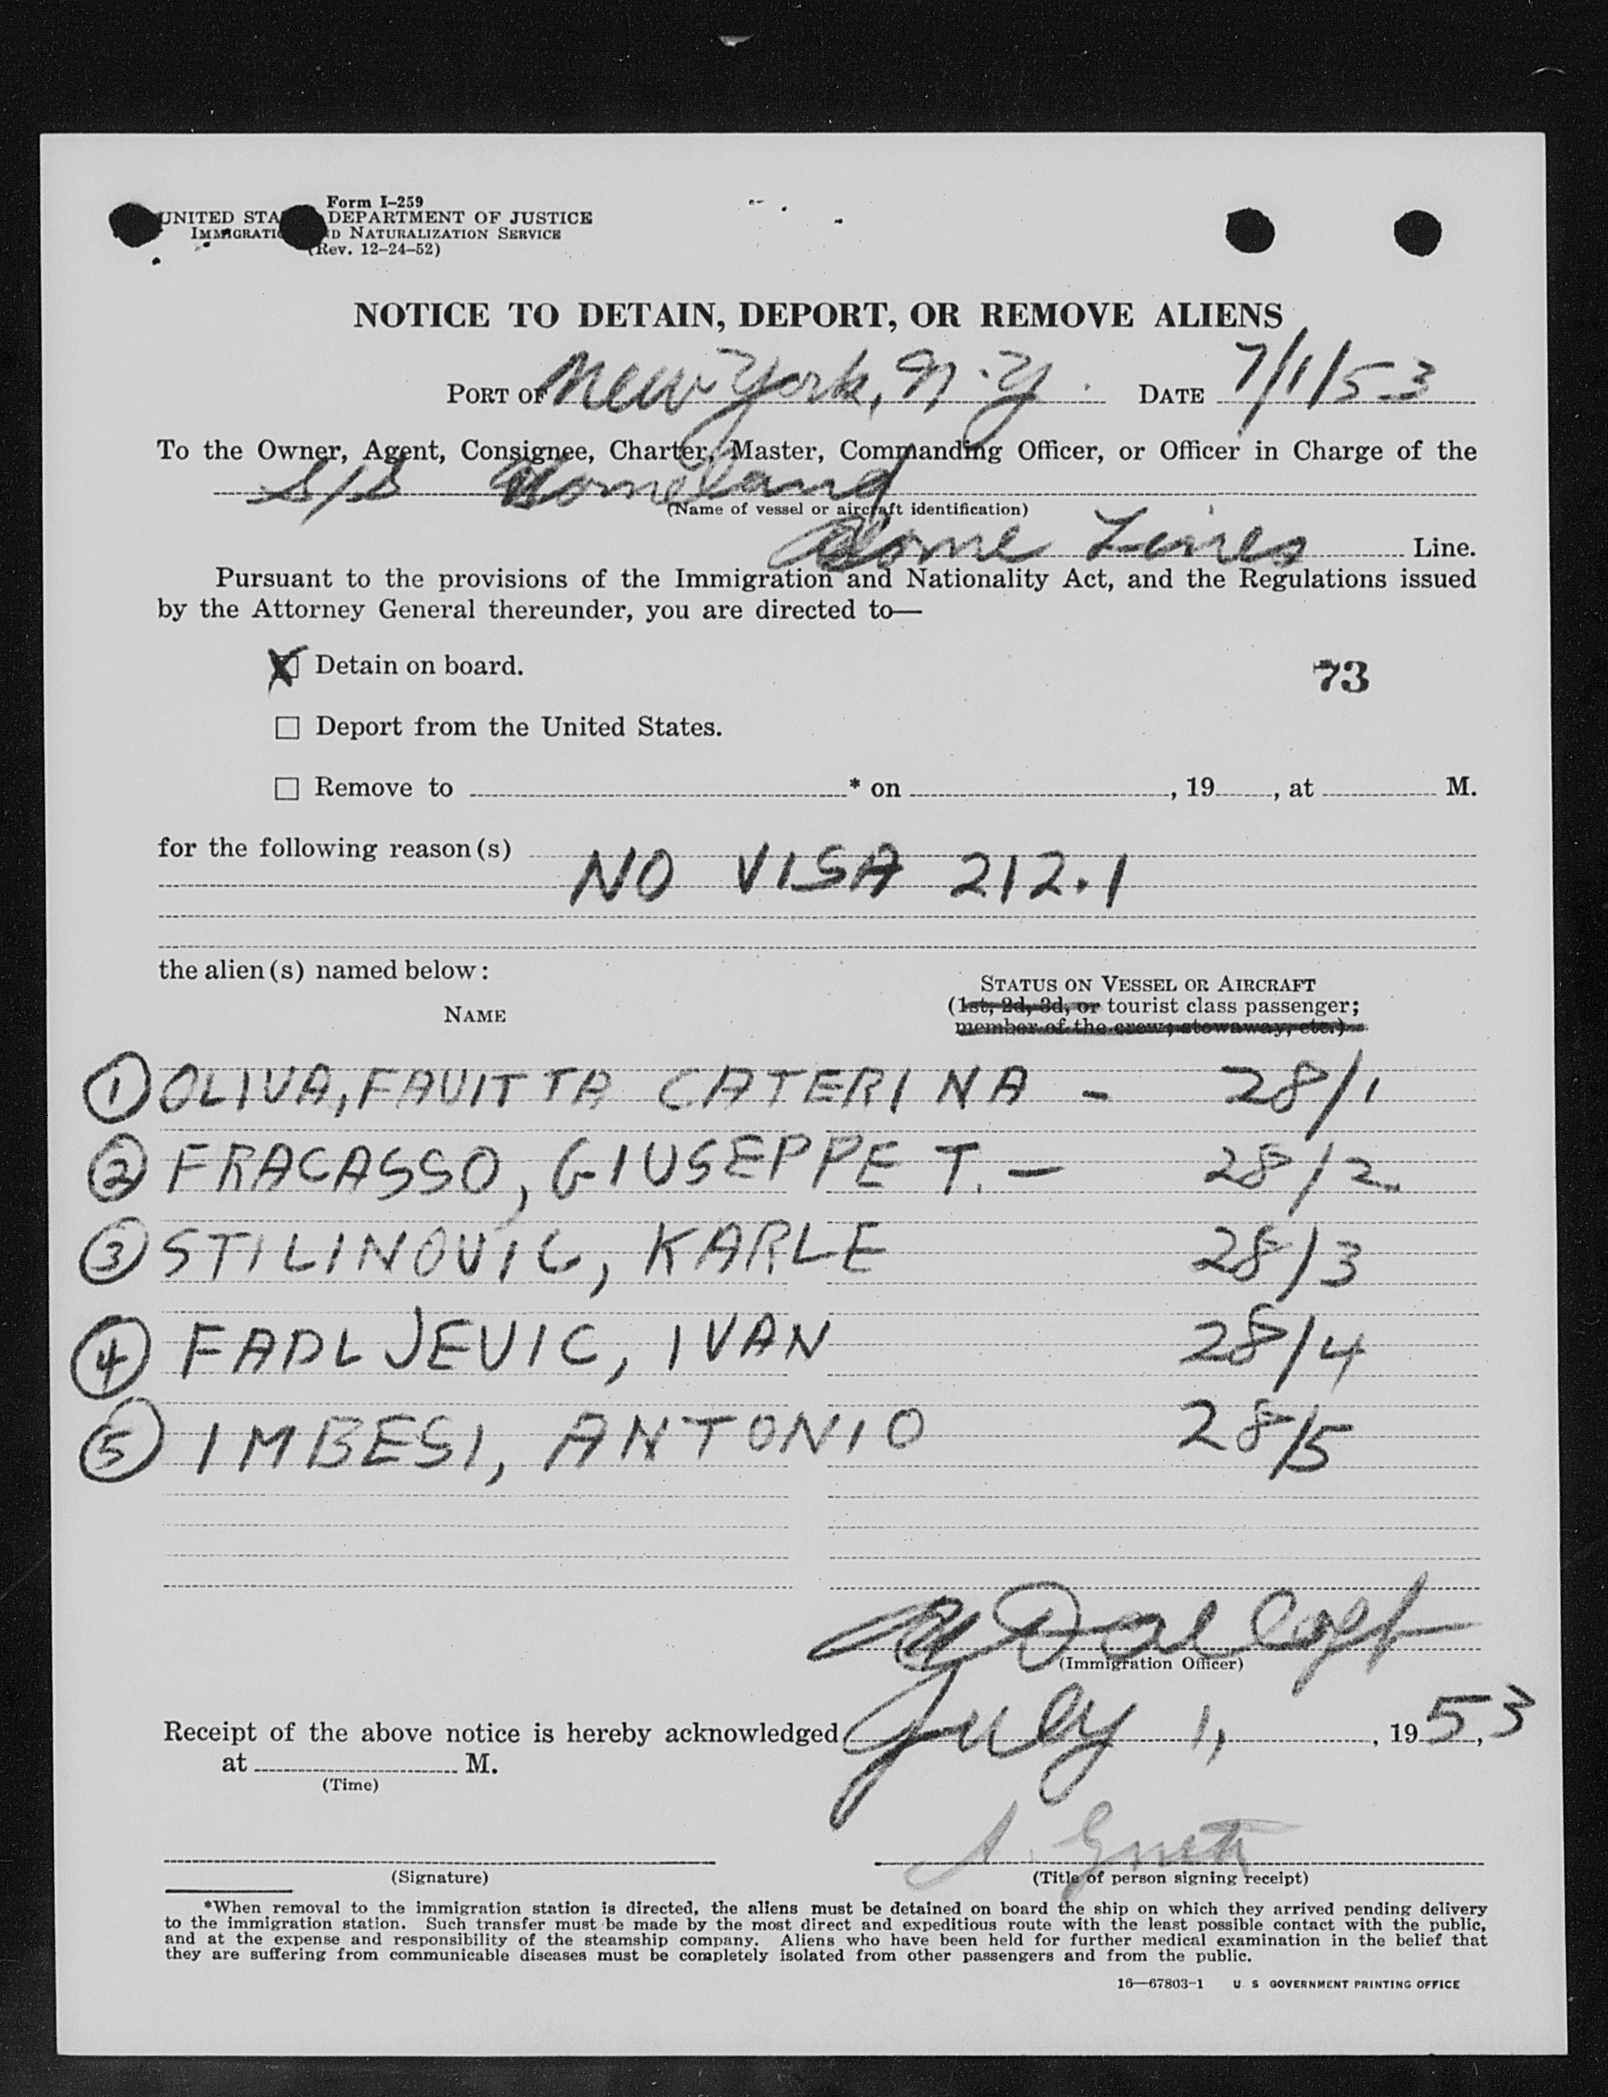 Form I-259
UNITED STA DEPARTMENT OF JUSTICE
IMMIGRATI D NATURALIZATION SERVICE
(Rev. 12-24-52)
NOTICE TO DETAIN, DEPORT, OR REMOVE ALIENS
PORT OF New York, N.Y. DATE 7/1/53
To the Owner, Agent, Consignee, Charter, Master, Commanding Officer, or Officer in Charge of the
S/S Homeland
(Name of vessel or aircraft identification)
Home Lines Line.
Pursuant to the provisions of the Immigration and Nationality Act, and the Regulations issued
by the Attorney General thereunder, you are directed to—
X Detain on board.
73
☐ Deport from the United States.
☐ Remove to * on , 19 , at M.
for the following reason(s)
NO VISA 212.1
the alien(s) named below:
STATUS ON VESSEL OR AIRCRAFT
NAME
(1st, 2d, 3d, or tourist class passenger;
member of the crew; stowaway, etc.)
1 OLIVA, FAUITTA CATERINA - 28/1
2 FRACASSO, GIUSEPPE T. - 28/2
3 STILINOVIC, KARLE 28/3
4 FADLJEVIC, IVAN 28/4
5 IMBESI, ANTONIO 28/5
(Immigration Officer)
Receipt of the above notice is hereby acknowledged July 1, , 1953,
at M.
(Time)
(Signature)
(Title of person signing receipt)
*When removal to the immigration station is directed, the aliens must be detained on board the ship on which they arrived pending delivery
to the immigration station. Such transfer must be made by the most direct and expeditious route with the least possible contact with the public,
and at the expense and responsibility of the steamship company. Aliens who have been held for further medical examination in the belief that
they are suffering from communicable diseases must be completely isolated from other passengers and from the public.
16—67803-1 U S GOVERNMENT PRINTING OFFICE